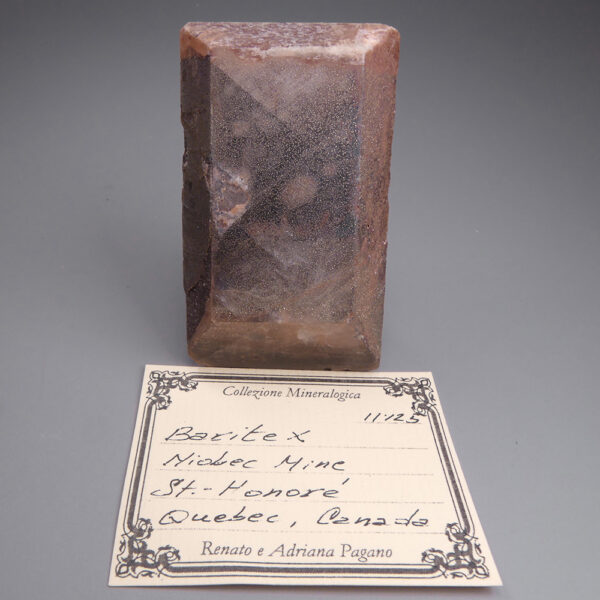 Collezione Mineralogica
11125
Barite X
Niobec Mine
St.-Honoré
Quebec, Canada
Renato e Adriana Pagano